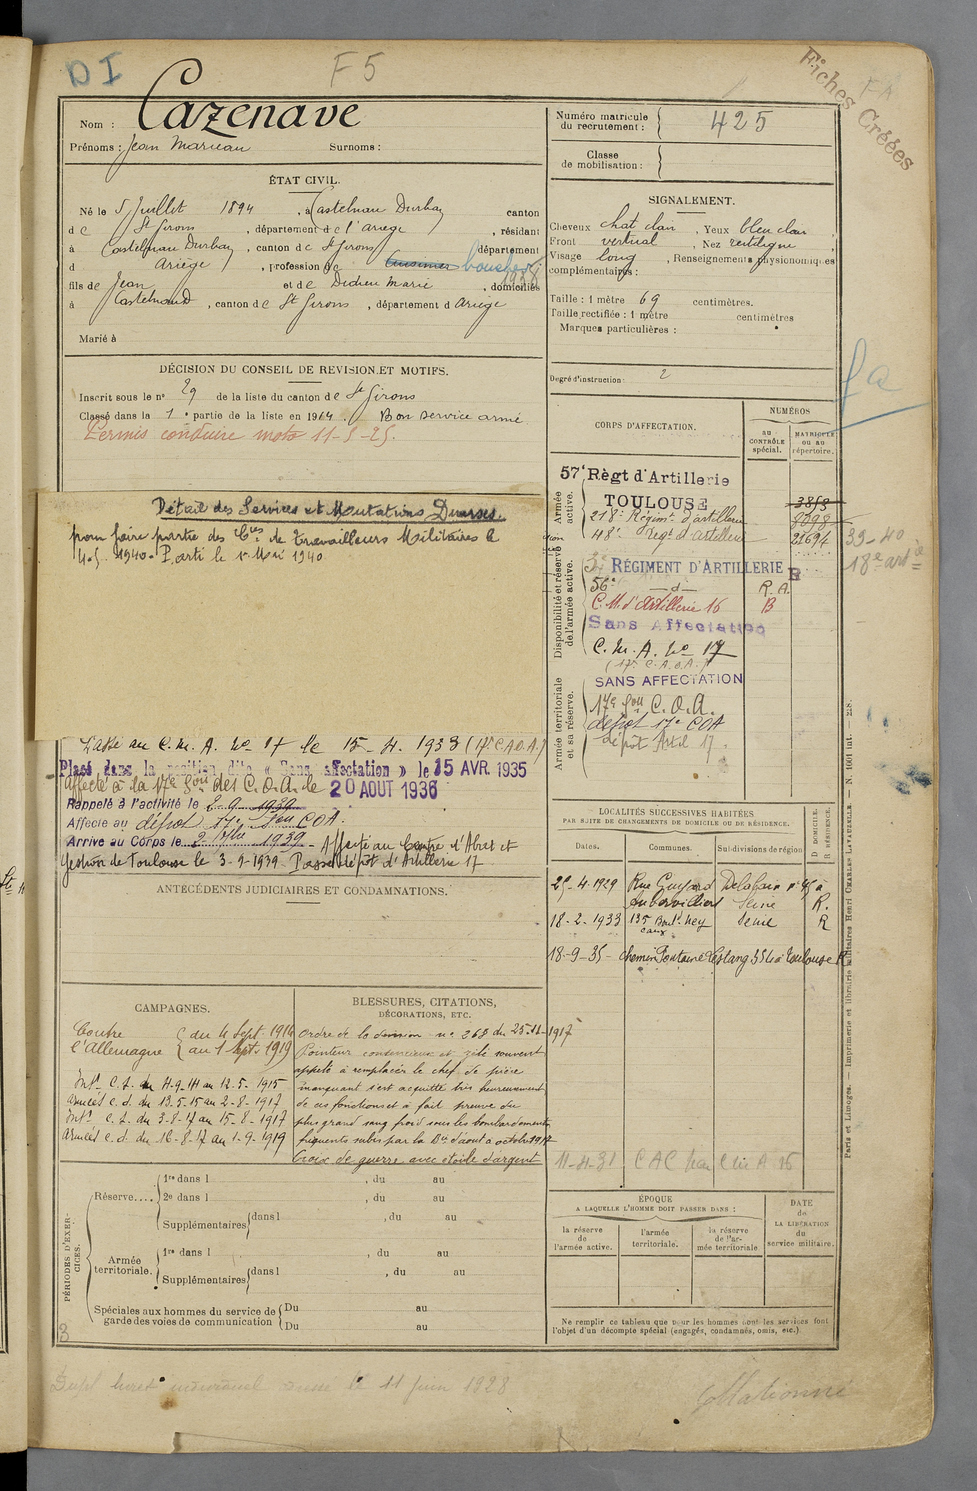 D I
F 5
Fiches Créées
Nom : Cazenave
Prénoms : Jean Surnoms :
Numéro matricule du recrutement : 425
Classe de mobilisation :
ÉTAT CIVIL.
Né le 5 Juillet 1894, à Castelnau Durban canton
de St Girons, département de l'ariege, résidant
à Castelnau Durban, canton de St Girons département
d Ariège, profession de Cuisinier boucher 1938
fils de Jean et de Didieu Marie, domiciliés
à Castelnaud, canton de St Girons, département d Ariege
Marié à
SIGNALEMENT.
Cheveux chat clair, Yeux bleu clair
Front vertical, Nez rectiligne
Visage long, Renseignements physionomiques
complémentaires :
Taille : 1 mètre 69 centimètres.
Taille rectifiée : 1 mètre centimètres
Marques particulières :
Degré d'instruction : 2
DÉCISION DU CONSEIL DE REVISION ET MOTIFS.
Inscrit sous le n° 29 de la liste du canton de St Girons
Classé dans la 1e partie de la liste en 1914. Bon service armé
Permis conduire moto 11-5-25.
Détail des Services et Mutations Diverses.
pour faire partie des Cies de travailleurs Militaires le
4.5.1940. Parti le 1 Mai 1940
Passé au C. M. A. No 17 le 15-4.1933 (17e C.A.O.A.)
Placé dans la position dite « Sans affectation » le 15 AVR. 1935
affecté à la 17e Son des C.O.A. le 20 AOUT 1936
Rappelé à l'activité le 2-9-1939
Affecté au dépot 17e Son COA.
Arrivé au Corps le 2 1939 - Affecté au Centre d'Abat et
Gestion de Toulouse le 3-9-1939. Passé dépôt d'Artillerie 17
CORPS D'AFFECTATION.
NUMÉROS
AU CONTRÔLE spécial.
MATRICULE ou au répertoire.
Armée active.
57e Règt d'Artillerie
TOULOUSE 3858
218e Régimt d'artillerie
48e Regt d'artillerie 21694
39-40
18e art
Disponibilité et réserve de l'armée active.
RÉGIMENT D'ARTILLERIE R
56e — d — R.A.
C.M. d'Artillerie 16 B
Sans Affectation
C. M. A. No 17
(17e C.A.O.A.)
Armée territoriale et sa réserve.
SANS AFFECTATION
17e Son C.O.A.
dépot 17e COA
Dépôt Artil 17
LOCALITÉS SUCCESSIVES HABITÉES
PAR SUITE DE CHANGEMENTS DE DOMICILE OU DE RÉSIDENCE.
Dates. Communes. Subdivisions de région D DOMICILE. R RÉSIDENCE.
25-4-1929 Rue Guyard Delalain n° 45 à
Aubervilliers Seine R.
18-2-1933 135 Boul. Ney Seine R
18-9-35 - chemin Fontaine Lestang à Toulouse R
11-4-31 CAC
ANTÉCÉDENTS JUDICIAIRES ET CONDAMNATIONS.
CAMPAGNES.
Contre l'Allemagne du 4 Sept. 1914 au 1 Sept. 1919
Int. C.S. du 4-9-14 au 12-5-1915
Armées C.d. du 13.5.15 au 2-8-1917
Int. C.S. du 3-8-17 au 15-8-1917
Armées C.d. du 16-8-17 au 1-9-1919
BLESSURES, CITATIONS, DÉCORATIONS, ETC.
Ordre de la division n° 268 du 25-11-1917
Pointeur consciencieux et zélé souvent
appelé à remplacer le chef de pièce
manquant s'est acquitté très heureusement
de ces fonctions et a fait preuve du
plus grand sang froid sous les bombardements
fréquents subis par la Bie d'aout a octobre 1917
Croix de guerre avec étoile d'argent
PÉRIODES D'EXERCICES.
Réserve.... 1re dans l , du au
2e dans l , du au
Supplémentaires dans l , du au
Armée territoriale. 1re dans l , du au
Supplémentaires dans l , du au
Spéciales aux hommes du service de garde des voies de communication Du au
Du au
ÉPOQUE
A LAQUELLE L'HOMME DOIT PASSER DANS :
la réserve de l'armée active. l'armée territoriale. la réserve de l'armée territoriale
DATE de LA LIBÉRATION du service militaire.
Ne remplir ce tableau que pour les hommes dont les services font
l'objet d'un décompte spécial (engagés, condamnés, omis, etc.)
Paris et Limoges. — Imprimerie et librairie militaires Henri CHARLES-LAVAUZELLE. — N. 1601 int.
3
Dupl livret individuel le 11 juin 1928
Collationné